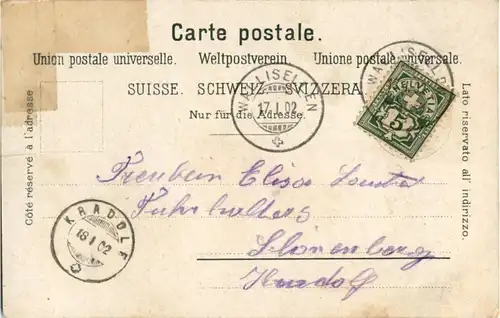 Carte postale.
Union postale universelle. Weltpostverein. Unione postale universale.
SUISSE. SCHWEIZ. SVIZZERA.
Nur für die Adresse.
Côté réservé à l'adresse
Lato riservato all' indirizzo.
WALLISELLEN
17.I.02
WALLISELLEN
HELVETIA
5
KRADOLF
18.I.02
Elisa
Fuhrhalters